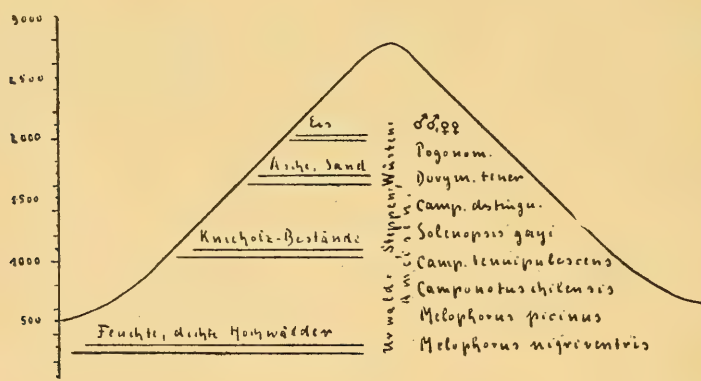 3000
2500
2000
1500
1000
500
Eis
Asche, Sand
Knieholz-Bestände
Feuchte, dichte Hochwälder
Urwald- Steppen, Wüsten
Ameisen.
♂♂,♀♀
Pogonom.
Dorym. tener
Camp. dstingu.
Solenopsis gayi
Camp. tenuipubescens
Camponotus chilensis
Melophorus picinus
Melophorus nigriventris